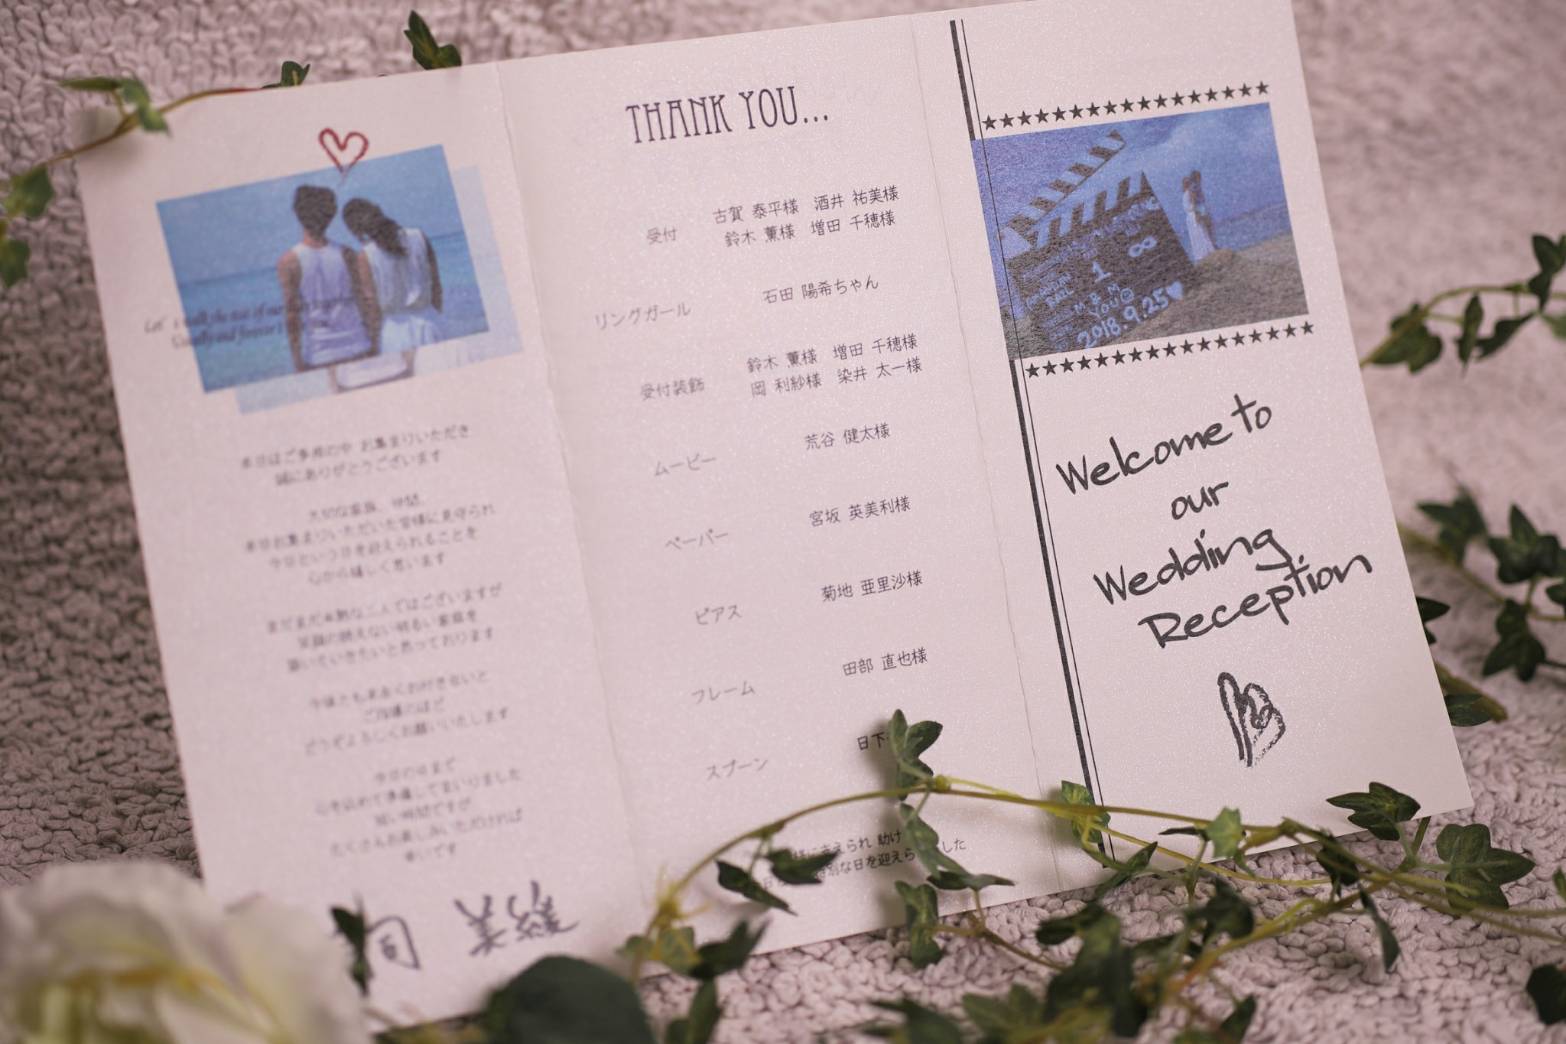 Let's walk the rest of our
Usually and forever I
本日はご多用の中 お集まりいただき
誠にありがとうございます
大切な家族、仲間、
本日お集まりいただいた皆様に見守られ
今日という日を迎えられることを
心から嬉しく思います
まだまだ未熟な二人ではございますが
笑顔の絶えない明るい家庭を
築いていきたいと思っております
今後とも末永くお付き合いと
ご指導のほど
どうぞよろしくお願いいたします
今日の日まで
心を込めて準備してまいりました
短い時間ですが
たくさんお楽しみいただければ
幸いです
THANK YOU...
受付 古賀 泰平様 酒井 祐美様
鈴木 薫様 増田 千穂様
リングガール 石田 陽希ちゃん
受付装飾 鈴木 薫様 増田 千穂様
岡 利紗様 染井 太一様
ムービー 荒谷 健太様
ペーパー 宮坂 英美利様
ピアス 菊地 亜里沙様
フレーム 田部 直也様
スプーン 日下
に支えられ 助け
特別な日を迎えら した
1 ∞
2018.9.25
Welcome to
our
Wedding
Reception